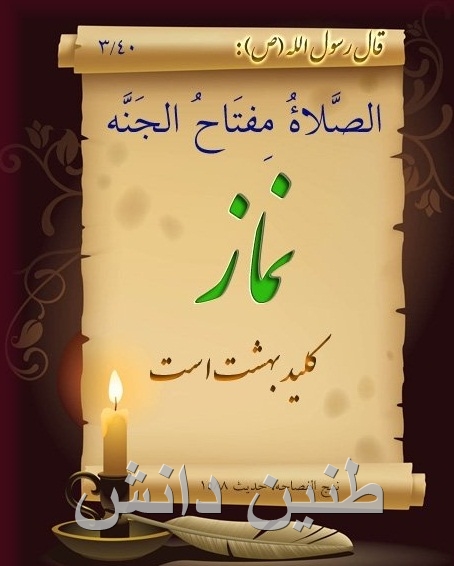 قال رسول الله (ص):
۳/۴۰
الصَّلاةُ مِفتَاحُ الجَنَّه
نماز
کلید بهشت است
نهج الفصاحه، حدیث
طنین دانش